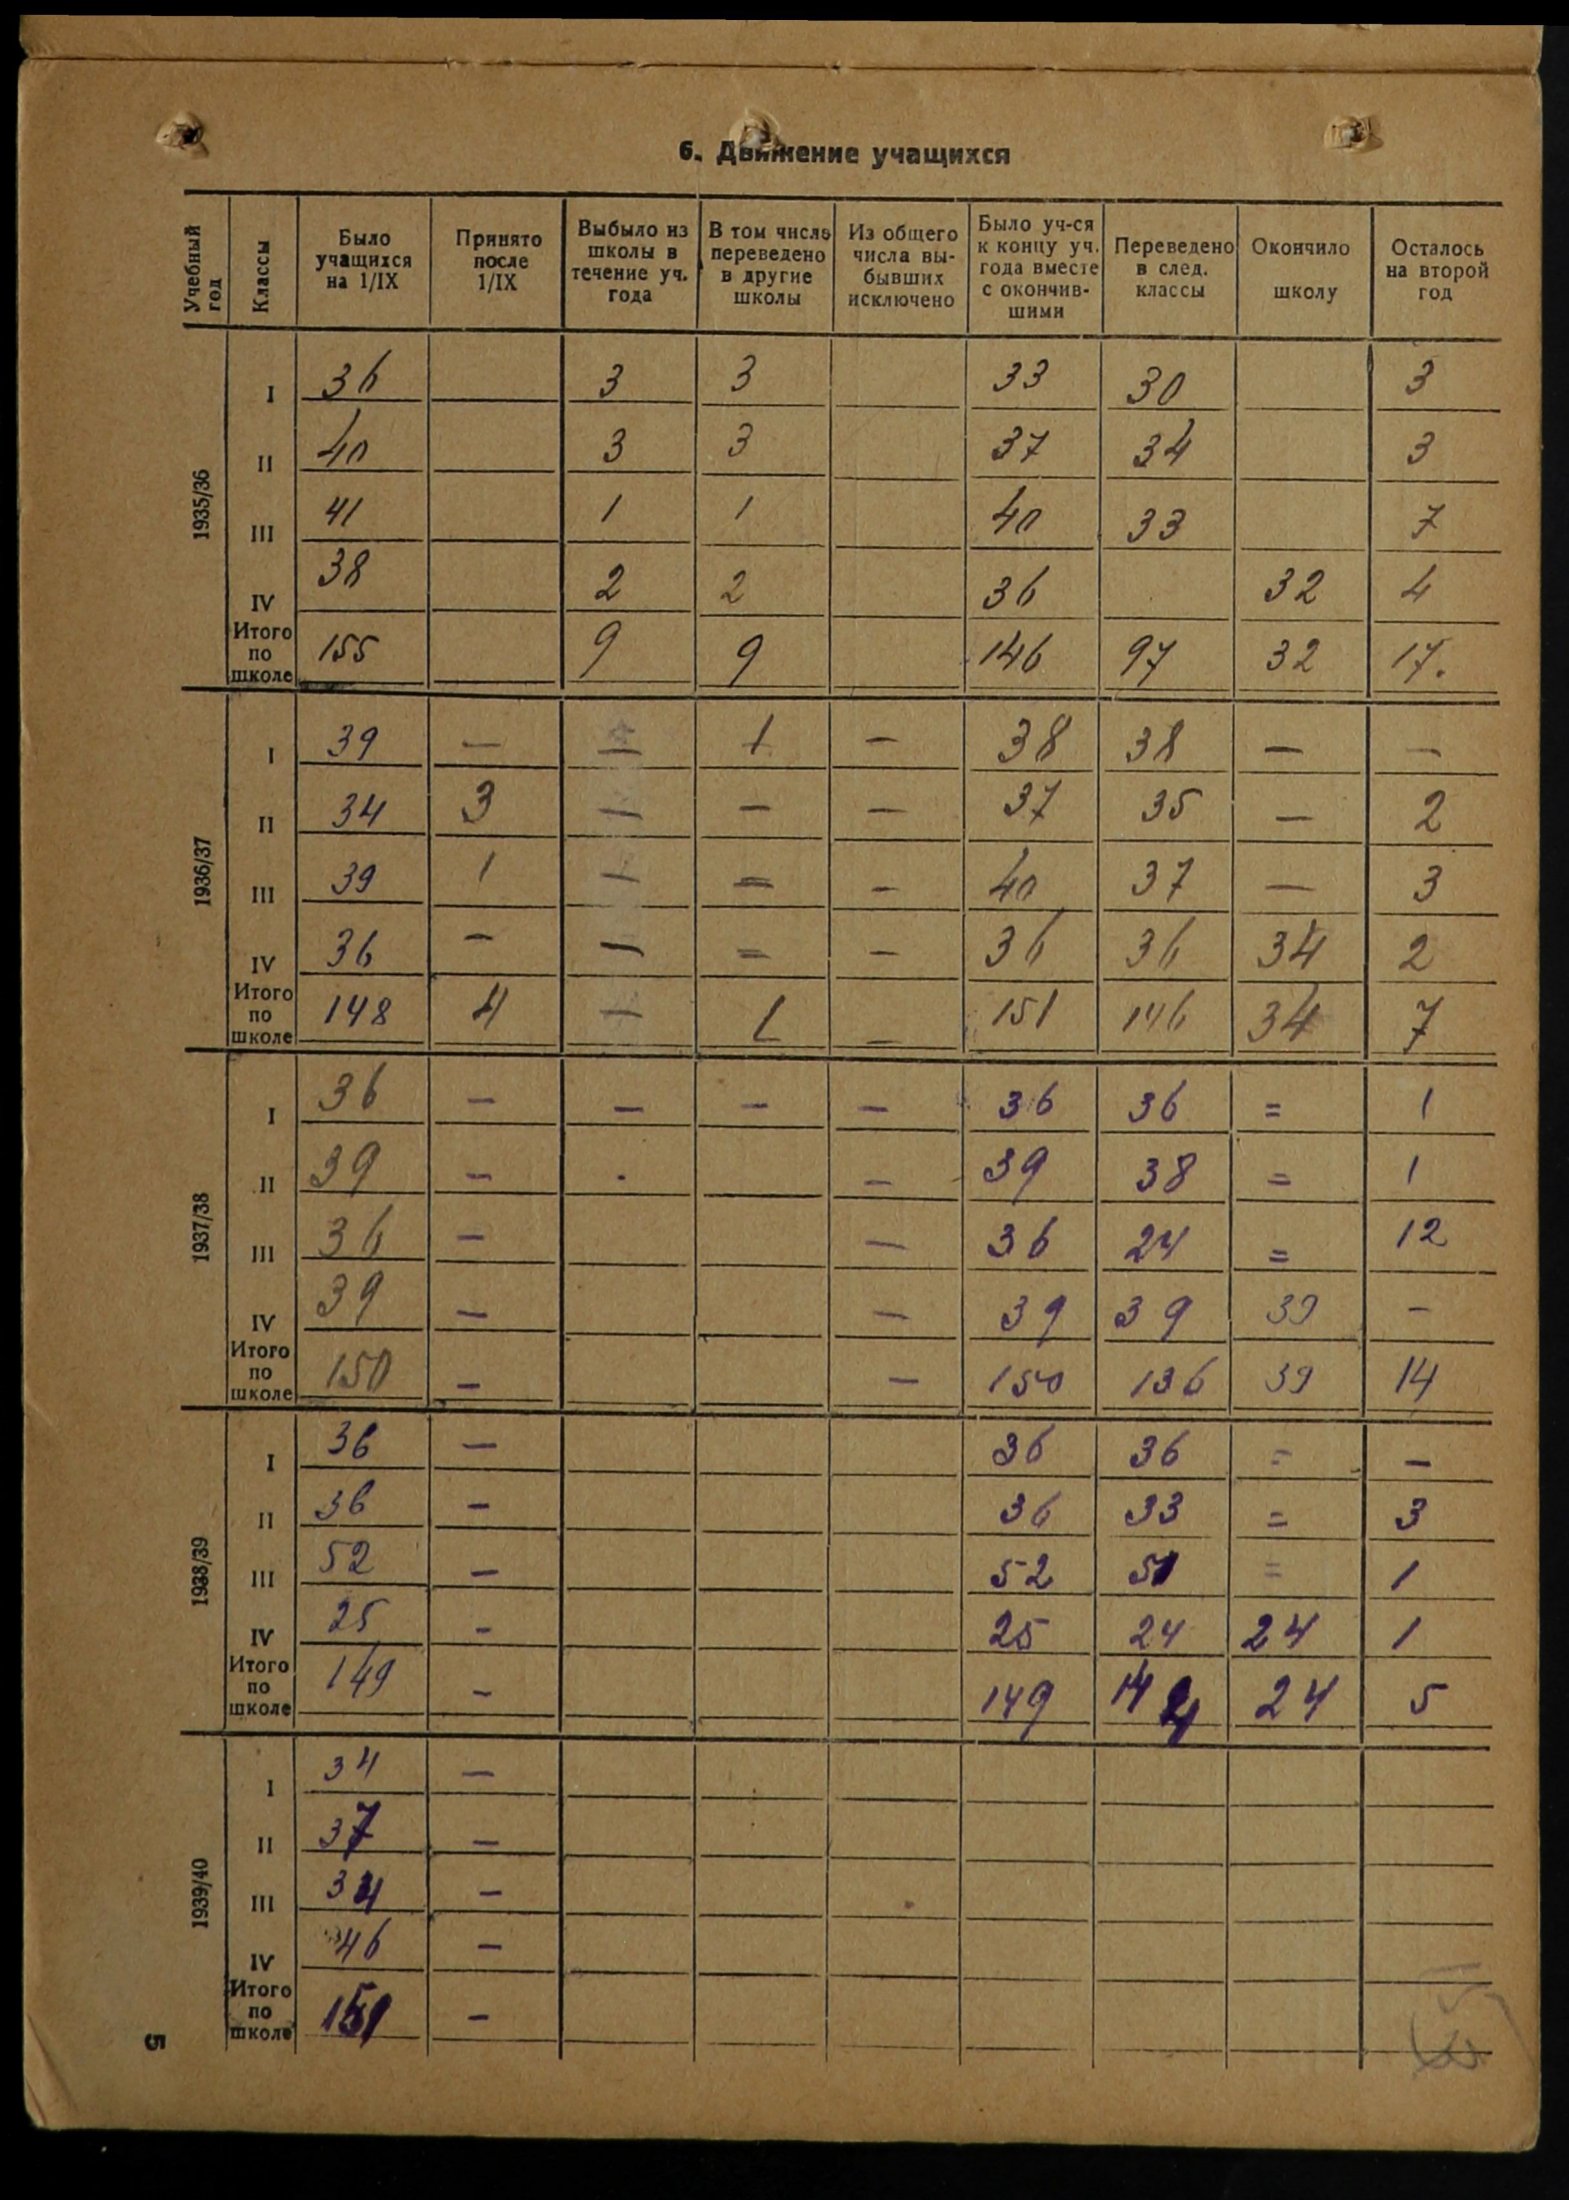 6. Движение учащихся
Учебный год | Классы | Было учащихся на 1/IX | Принято после 1/IX | Выбыло из школы в течение уч. года | В том числе переведено в другие школы | Из общего числа выбывших исключено | Было уч-ся к концу уч. года вместе с окончившими | Переведено в след. классы | Окончило школу | Осталось на второй год
1935/36
I | 36 | | 3 | 3 | | 33 | 30 | | 3
II | 40 | | 3 | 3 | | 37 | 34 | | 3
III | 41 | | 1 | 1 | | 40 | 33 | | 7
IV | 38 | | 2 | 2 | | 36 | | 32 | 4
Итого по школе | 155 | | 9 | 9 | | 146 | 97 | 32 | 17.
1936/37
I | 39 | — | — | 1 | — | 38 | 38 | — | —
II | 34 | 3 | — | — | — | 37 | 35 | — | 2
III | 39 | 1 | — | = | — | 40 | 37 | — | 3
IV | 36 | — | — | = | — | 36 | 36 | 34 | 2
Итого по школе | 148 | 4 | — | 1 | — | 151 | 146 | 34 | 7
1937/38
I | 36 | — | — | — | — | 36 | 36 | = | 1
II | 39 | — | - | | — | 39 | 38 | = | 1
III | 36 | — | | | — | 36 | 24 | = | 12
IV | 39 | — | | | — | 39 | 39 | 39 | —
Итого по школе | 150 | — | | | — | 150 | 136 | 39 | 14
1938/39
I | 36 | — | | | | 36 | 36 | = | —
II | 36 | — | | | | 36 | 33 | = | 3
III | 52 | — | | | | 52 | 51 | = | 1
IV | 25 | — | | | | 25 | 24 | 24 | 1
Итого по школе | 149 | — | | | | 149 | 144 | 24 | 5
1939/40
I | 34 | —
II | 37 | —
III | 34 | —
IV | 46 | —
Итого по школе | 151 | —
5